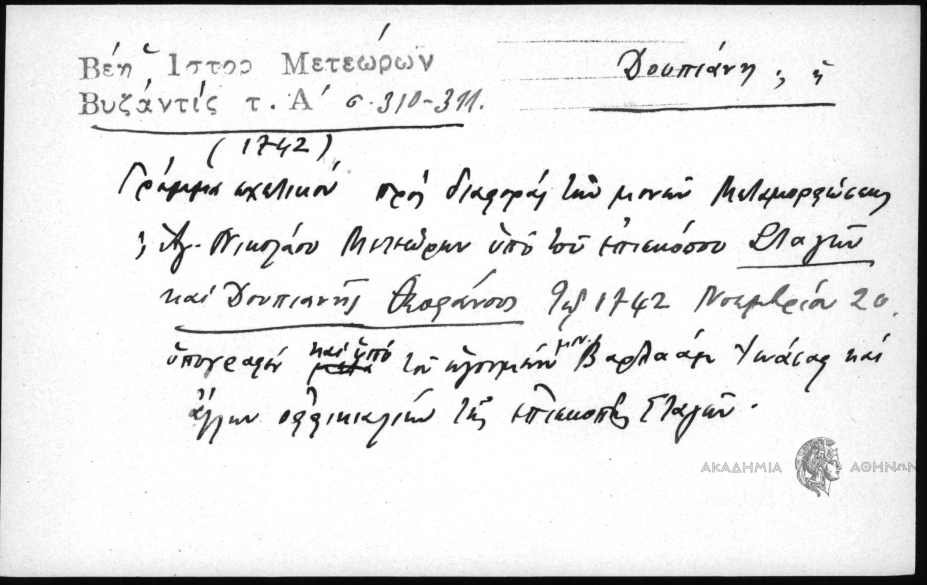 Βέη, Ιστορ Μετεώρων
Βυζάντίς τ. Α΄ σ. 310-311.
Δουπιάνη, ἡ
(1742)
Γράμμα σχετικόν πρός διαφοράς τῶν μονῶν Μεταμορφώσεως
Ἁγ. Νικολάου Μετεώρων ὑπό τοῦ ἐπισκόπου Σταγῶν
καί Δουπιανῆς Θεοφάνους τῇ 1742 Νοεμβρίου 20.
ὑπογραφέν καί ὑπό τοῦ ἡγουμένου μον. Βαρλαάμ καί
ἄλλων ὀφφικιαλίων τῆς ἐπισκοπῆς Σταγῶν.
ΑΚΑΔΗΜΙΑ ΑΘΗΝΩΝ